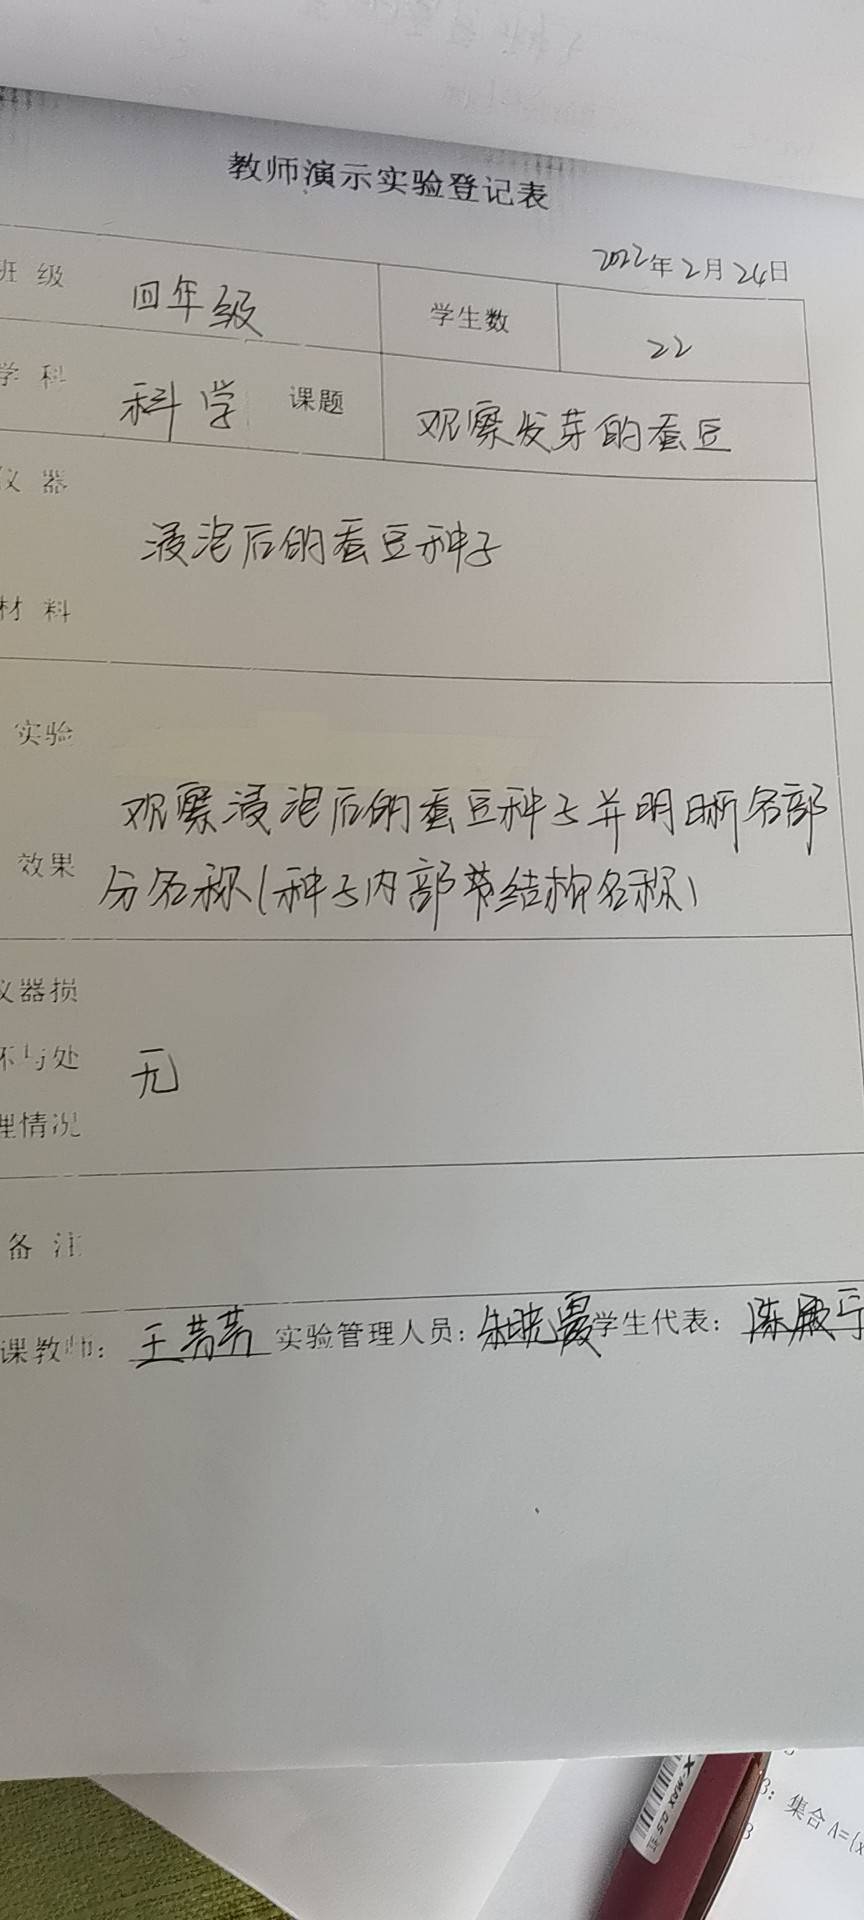 教师演示实验登记表
2022年2月24日
班 级 四年级 学生数 22
学 科 科学 课题 观察发芽的蚕豆
仪 器
浸泡后的蚕豆种子
材 料
实验
观察浸泡后的蚕豆种子并明晰各部
效果 分名称(种子内部节结构名称)
仪器损
坏与处 无
理情况
备 注
课教师: 王芳芳 实验管理人员: 朱晓霞 学生代表: 陈
X-MAX 0.5
3: 集合 A={x
3